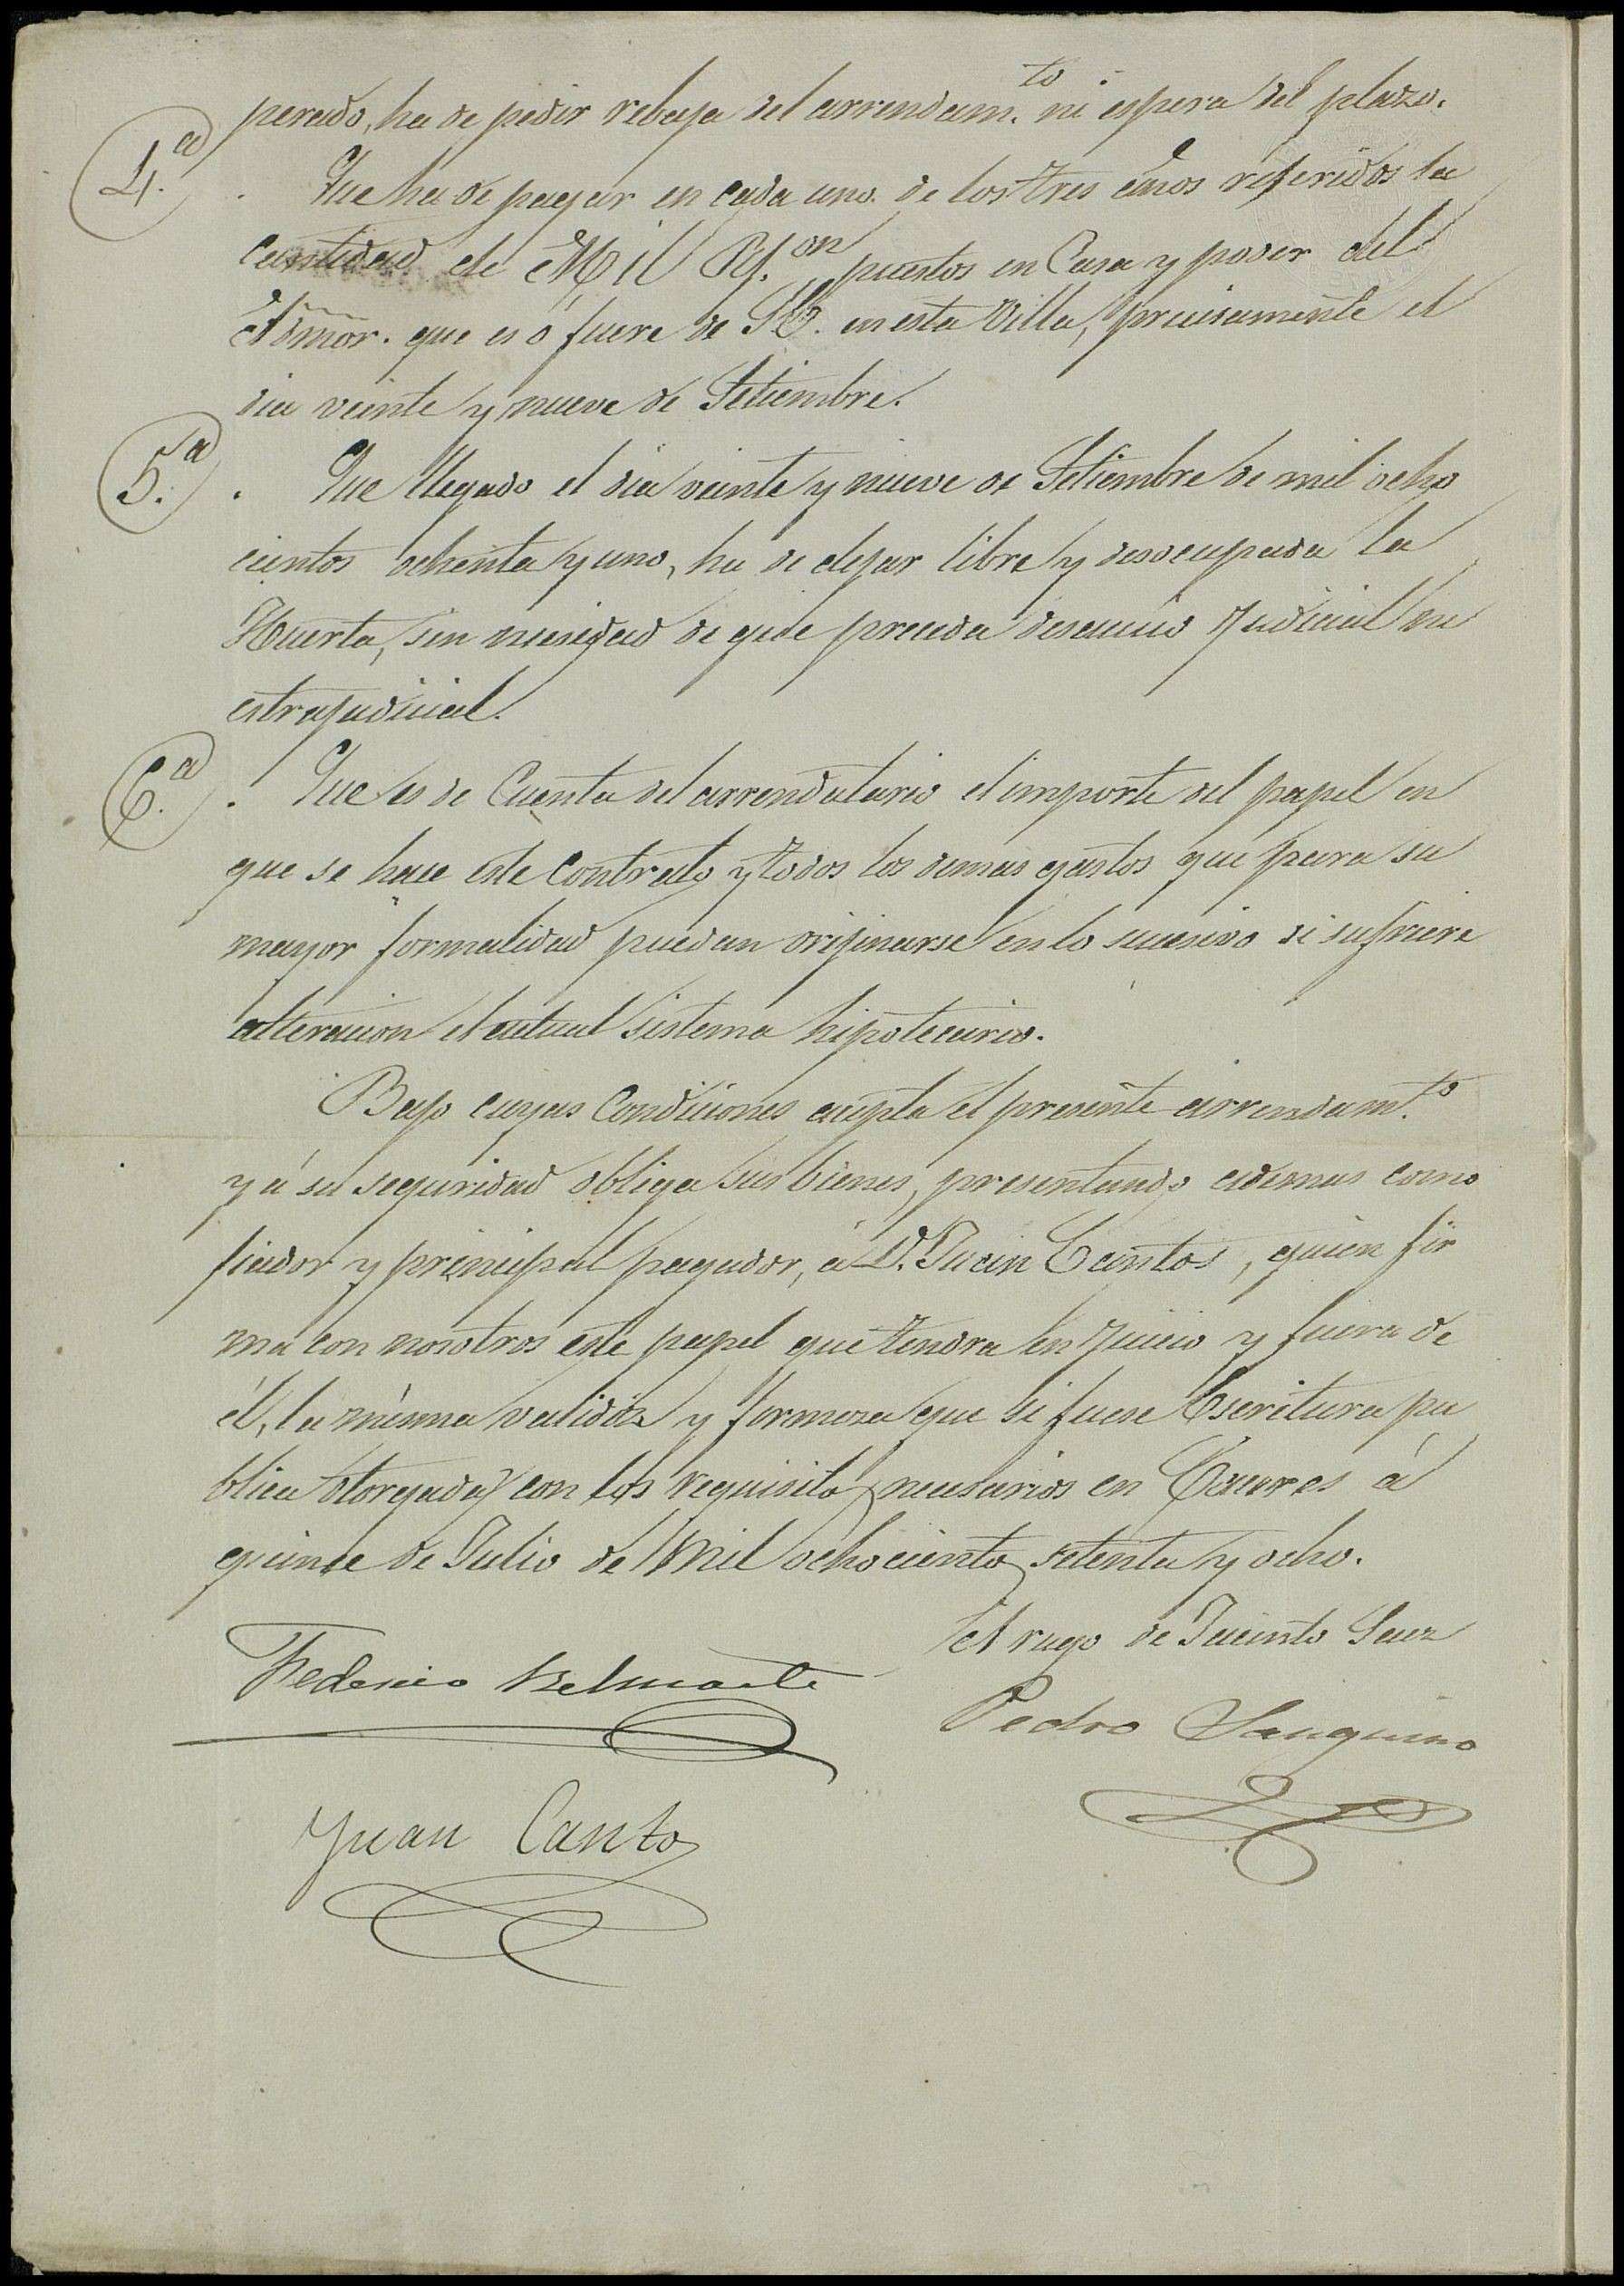 perado, ha de pedir rebaja del arrendam.to ni espera del plazo.
4.a . Que ha de pagar en cada uno de los tres años referidos la
Cantidad de Mil Rs. on puestos en Casa y poder del
Admor. que es ó fuere de S.E. en esta Villa, precisamente el
dia veinte y nueve de Setiembre.
5.a . Que llegado el dia veinte y nueve de Setiembre de mil ocho
cientos ochenta y uno, ha de dejar libre y desocupada la
Huerta, sin necesidad de que preceda desaucio Judicial ni
estrajudicial.
6.a . Que es de Cuenta del arrendatario el importe del papel en
que se hace este Contrato y todos los demas gastos que para su
mayor formalidad puedan orijinarse en lo sucesivo si sufriera
alteracion el actual sistema hipotecario.
Bajo cuyas Condiciones acepta el presente arrendamto
y á su seguridad obliga sus bienes, presentando ademas como
fiador y principal pagador, á D. Juan Cantos, quien fir
ma con nosotros este papel que tendra en juicio y fuera de
él, la misma validéz y firmeza que si fuese Escritura pu
blica otorgada con los requisitos necesarios en
quince de Julio de Mil ochocientos setenta y ocho.
A ruego de Jacinto Saez
Federico Belmonte
Pedro Sanguino
Juan Cantos